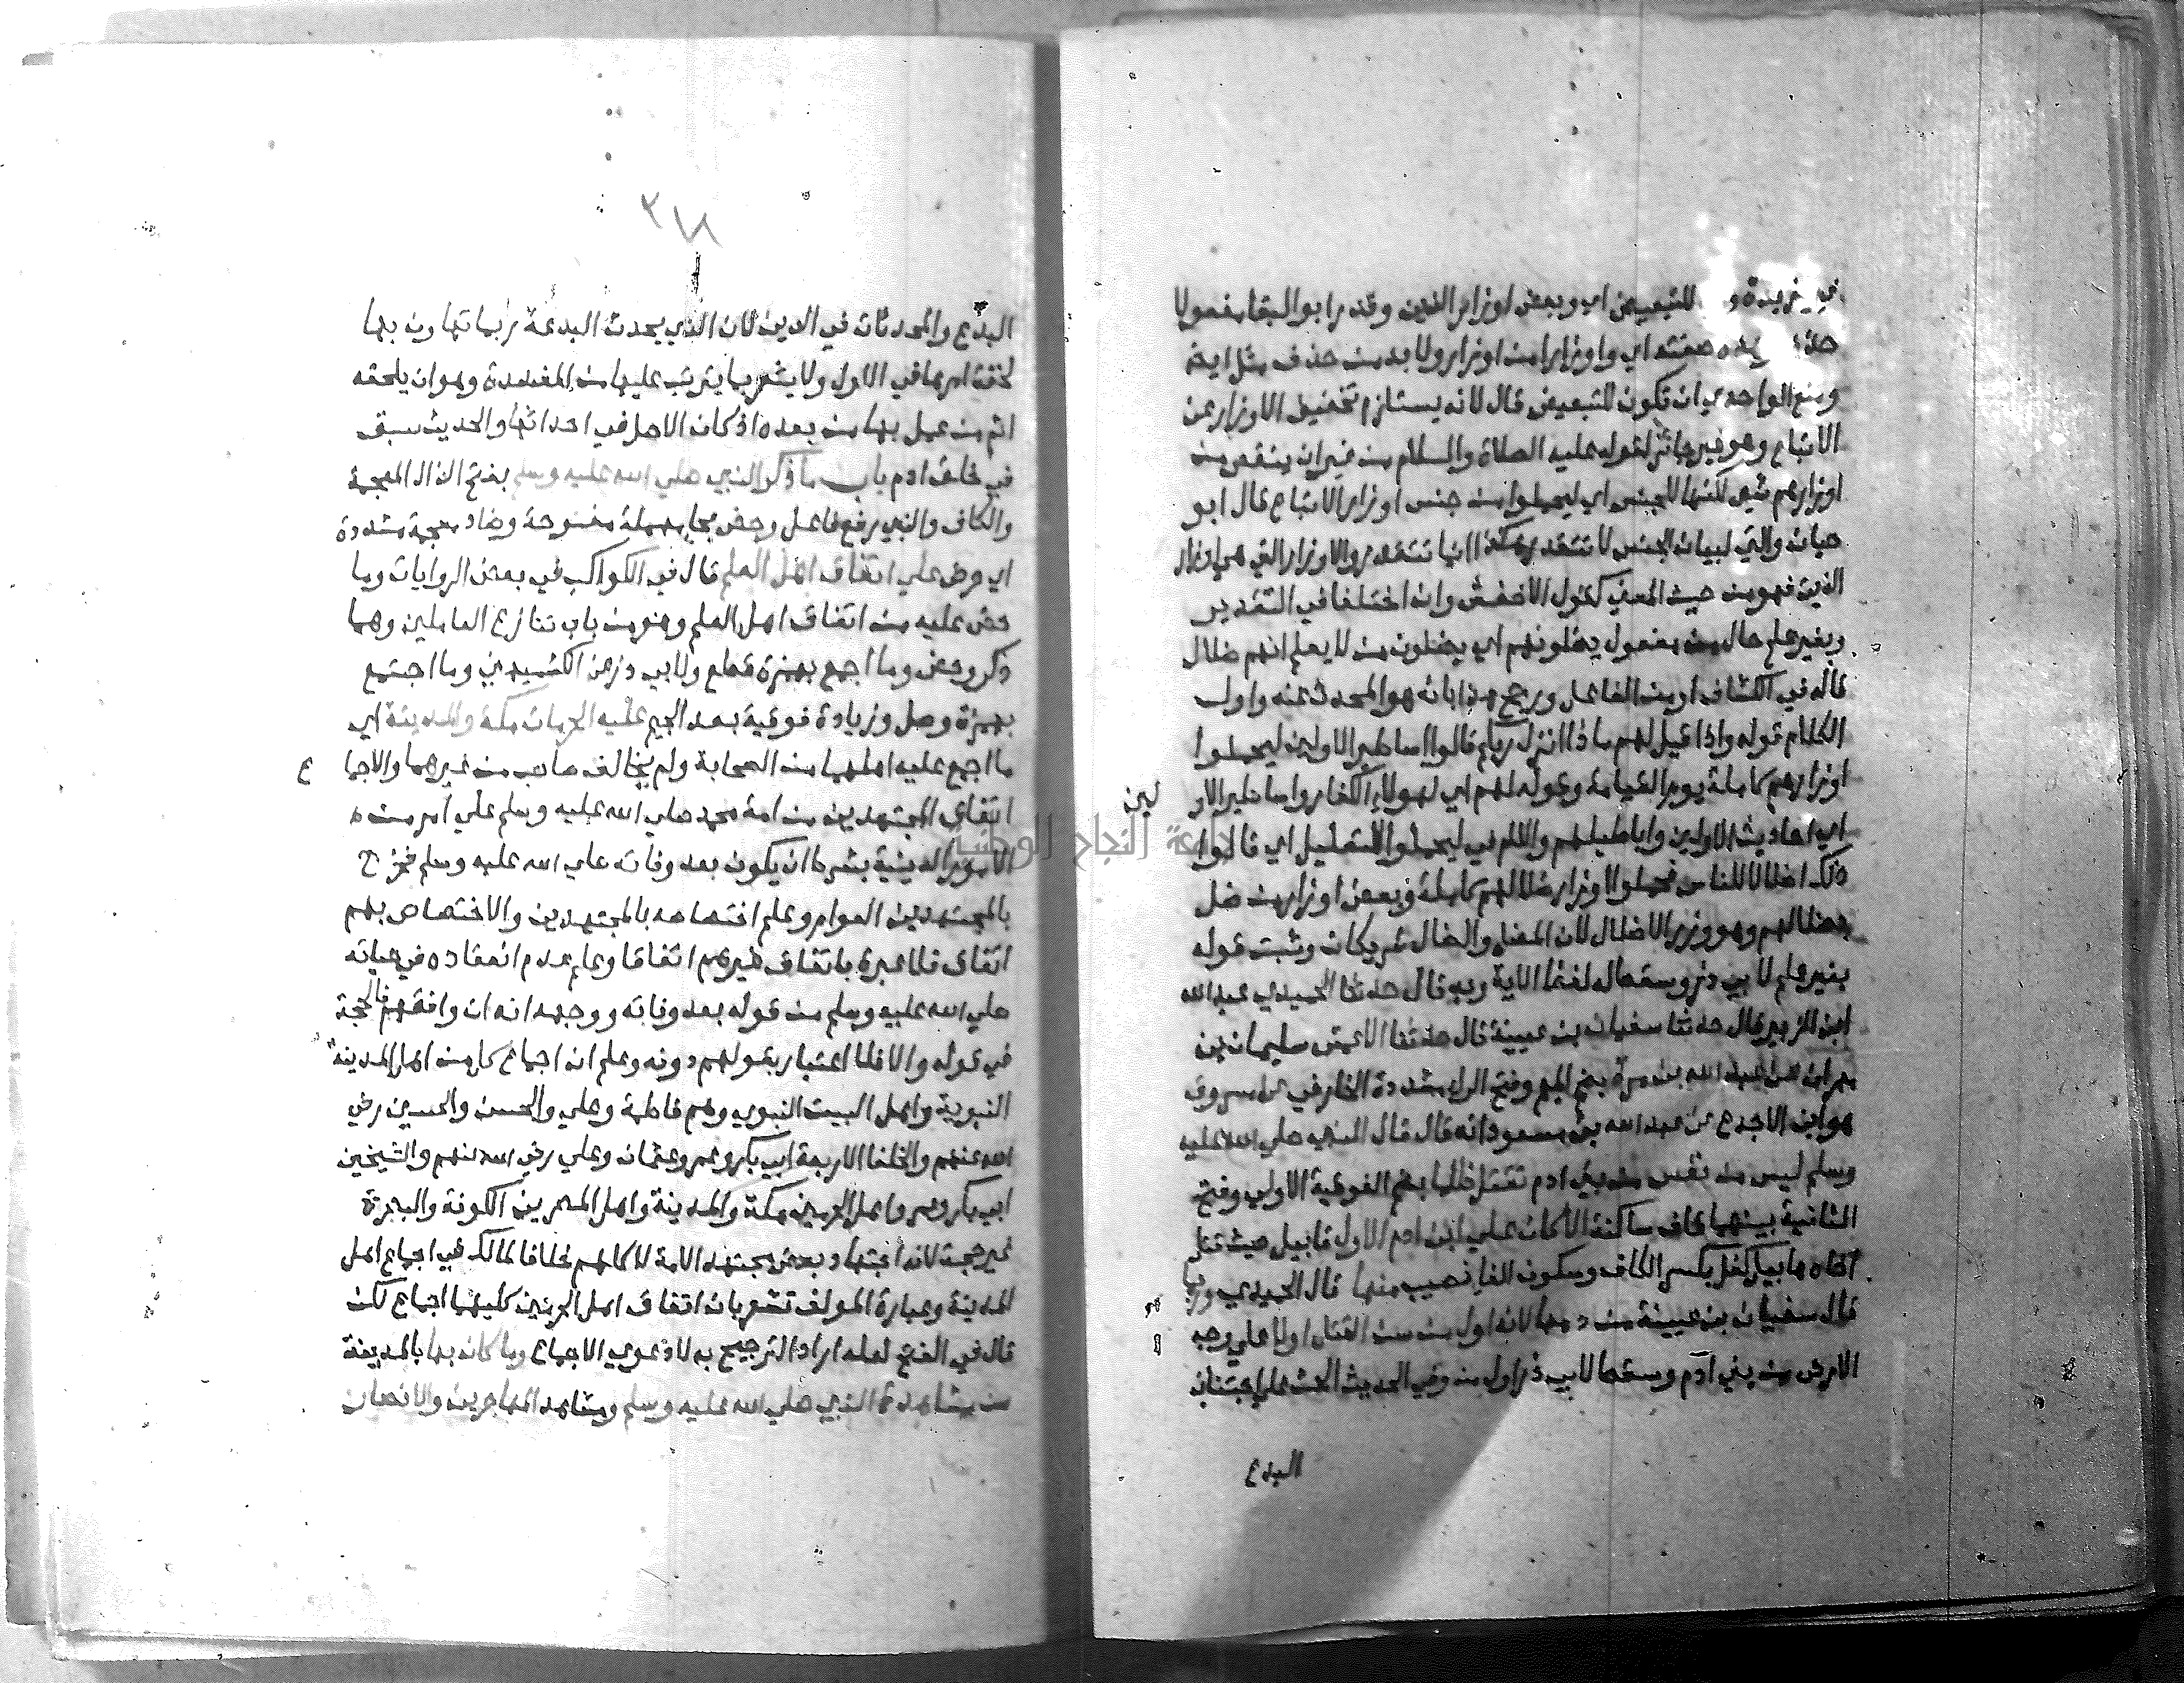 في مزيدة و للتبعيض اي وبعض اوزار الذين وقدر ابو البقا مفعولا
حذف وهذه صفته اي واوزارا من اوزار ولا بد من حذف مثل ايضا
ومنع الواحدي ان تكون للتبعيض قال لانه يستلزم تخفيف الاوزار عن
الاتباع وهو غير جائز لقوله عليه الصلاة والسلام من غير ان ينقص من
اوزارهم شي لكنها للجنس اي ليحملوا من جنس اوزار الاتباع قال ابو
حيان والتي لبيان الجنس لا تتقدر هكذا انما تتقدر والاوزار التي هي اوزار
الذين فهو من حيث المعني كقول الاخفش وان اختلفا في التقدير
وبغير علم حال من مفعول يضلونهم اي يضلون من لا يعلم انهم ضلال
قاله في الكشاف او من الفاعل ورجح هذا بانه هو المحدث عنه واول
الكلام قوله واذا قيل لهم ماذا انزل ربكم قالوا اساطير الاولين ليحملوا
اوزارهم كاملة يوم القيامة وقوله لهم اي لهولاء الكفار واساطير الاو لين
اي احاديث الاولين واباطيلهم واللام في ليحملوا للتعليل اي قالوا
ذلك اضلالا للناس فحملوا اوزار ضلالهم كاملة وبعض اوزار من ضل
بضلالهم وهو وزر الاضلال لان المضل والضال شريكان وثبت قوله
بغير علم لابي ذر وسقط له لفظ الاية وبه قال حدثنا الحميدي عبد الله
ابن الزبير قال حدثنا سفيان بن عيينة قال حدثنا الاعمش سليمان بن
مهران عن عبد الله بن مرة بضم الميم وفتح الراء مشددة الخارفي عن مسروق
هو ابن الاجدع عن عبد الله بن مسعود انه قال قال النبي صلي الله عليه
وسلم ليس من نفس من بني ادم تقتل ظلما بضم الفوقية الاولي وفتح
الثانية بينهما قاف ساكنة الا كان علي ابن ادم الاول قابيل حيث قتل
اخاه هابيل كفل بكسر الكاف وسكون الفا نصيب منها قال الحميدي وربما
قال سفيان بن عيينة من دمها لانه اول من سن القتل اولا علي وجه
الارض من بني ادم وسقط لابي ذر اول من وفي الحديث الحث علي اجتناب
البدع
٣١٨
البدع والمحدثات في الدين لان الذي يحدث البدعة ربما تهاون بها
لخفة امرها في الاول ولا يشعر بما يترتب عليها من المفسدة وهو ان يلحقه
اثم من عمل بها من بعده اذ كان الاصل في احداثها والحديث سبق
في خلق ادم باب ما ذكر النبي صلي الله عليه وسلم بفتح الذال المعجمة
والكاف والنبي رفع فاعل وحض بحا مهملة مفتوحة وضاد معجمة مشددة
اي وحض علي اتفاق اهل العلم قال في الكواكب في بعض الروايات وما
حض عليه من اتفاق اهل العلم وهو من باب تنازع العاملين وهما
ذكر وحض وما اجمع بهمزة قطع ولابي ذر عن الكشميهني وما اجتمع
بهمزة وصل وزيادة فوقية بعد الجيم عليه الحرمان مكة والمدينة اي
ما اجمع عليه اهلهما من الصحابة ولم يخالف صاحب من غيرهما والاجما ع
اتفاق المجتهدين من امة محمد صلي الله عليه وسلم علي امر من
الامور الدينية بشرط ان يكون بعد وفاته صلي الله عليه وسلم فخرج
بالمجتهدين العوام وعلم اختصاصه بالمجتهدين والاختصاص بهم
اتفاق فلا عبرة باتفاق غيرهم اتفاقا وعلم عدم انعقاده في حياته
صلي الله عليه وسلم من قوله بعد وفاته ووجهه انه ان وافقهم فالحجة
في قوله والا فلا اعتبار بقولهم دونه وعلم ان اجماع كل من اهل المدينة
النبوية واهل البيت النبوي وهم فاطمة وعلي والحسن والحسين رضي
الله عنهم والخلفا الاربعة ابي بكر وعمر وعثمان وعلي رضي الله عنهم والشيخين
ابي بكر وعمر واهل الحرمين مكة والمدينة واهل المصرين الكوفة والبصرة
غير حجة لانه اجتهاد بعض مجتهد الامة لا كلهم خلافا لمالك في اجماع اهل
المدينة وعبارة المولف تشعر بان اتفاق اهل الحرمين كليهما اجماع لكن
قال في الفتح لعله اراد الترجيح به لا دعوي الاجماع وما كان بها بالمدينة
من مشاهدة النبي صلي الله عليه وسلم ومشاهد المهاجرين والانصار